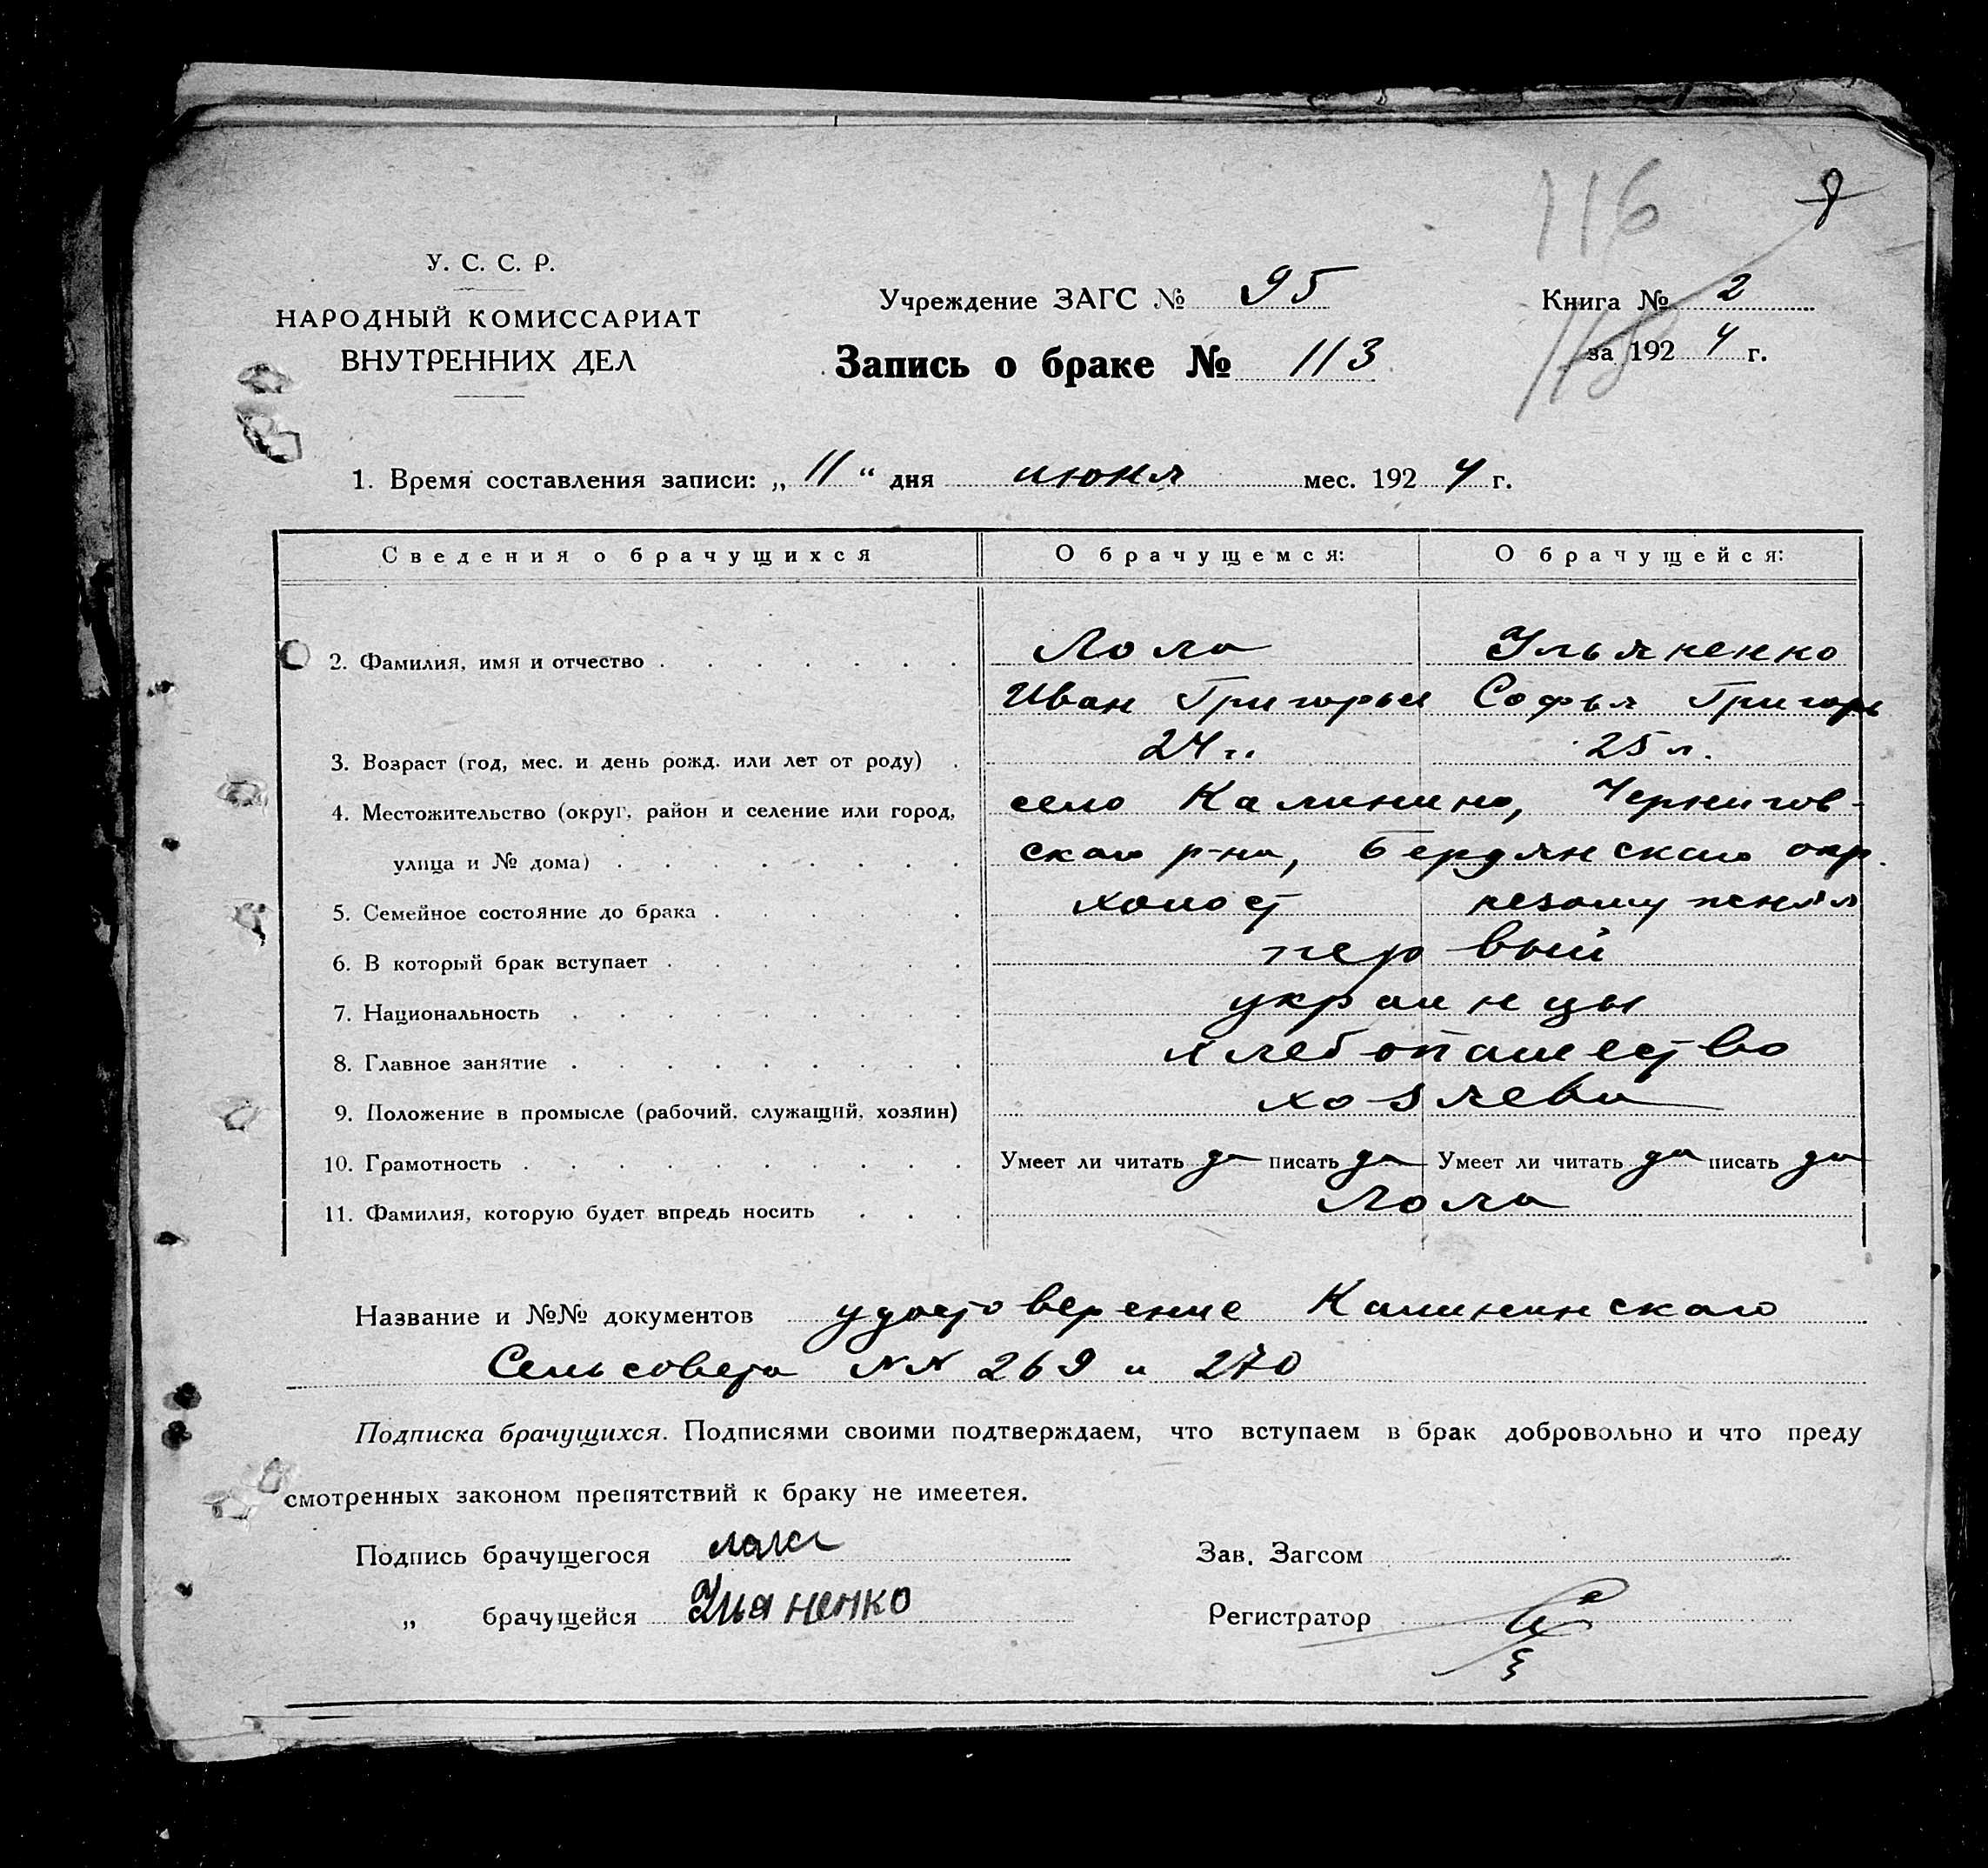 116
У. С. С. Р.
НАРОДНЫЙ КОМИССАРИАТ
ВНУТРЕННИХ ДЕЛ
Учреждение ЗАГС № 95
Книга № 2
за 1924 г.
Запись о браке № 113
1. Время составления записи: „ 11 “ дня июня мес. 1924 г.
Сведения о брачущихся О брачущемся: О брачущейся:
2. Фамилия, имя и отчество Лола Ульяненко
Иван Григорьев Софья Григорь
3. Возраст (год, мес. и день рожд. или лет от роду) 24 г. 25 л.
4. Местожительство (округ, район и селение или город, село Калинино, Чернигов-
улица и № дома) ского р-на, Бердянского окр.
5. Семейное состояние до брака холост незамужняя
6. В который брак вступает первый
7. Национальность украинцы
8. Главное занятие хлебопашество
9. Положение в промысле (рабочий, служащий, хозяин) хозяева
10. Грамотность Умеет ли читать да писать да Умеет ли читать да писать да
11. Фамилия, которую будет впредь носить Лола
Название и №№ документов удостоверение Калининского
Сельсовета NN 269 и 270
Подписка брачущихся. Подписями своими подтверждаем, что вступаем в брак добровольно и что преду
смотренных законом препятствий к браку не имеетея.
Подпись брачущегося лола Зав. Загсом
„ брачущейся Ульяненко Регистратор